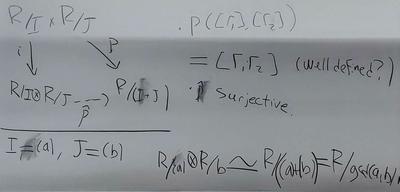 R/I × R/J
i p
R/I⊗R/J --→ R/(I+J)
p̃
I=(a), J=(b)
· p([r₁],[r₂])
= [r₁r₂] (well defined?)
· surjective.
R/(a)⊗R/b ≃ R/(a+b)=R/gcd(a,b)